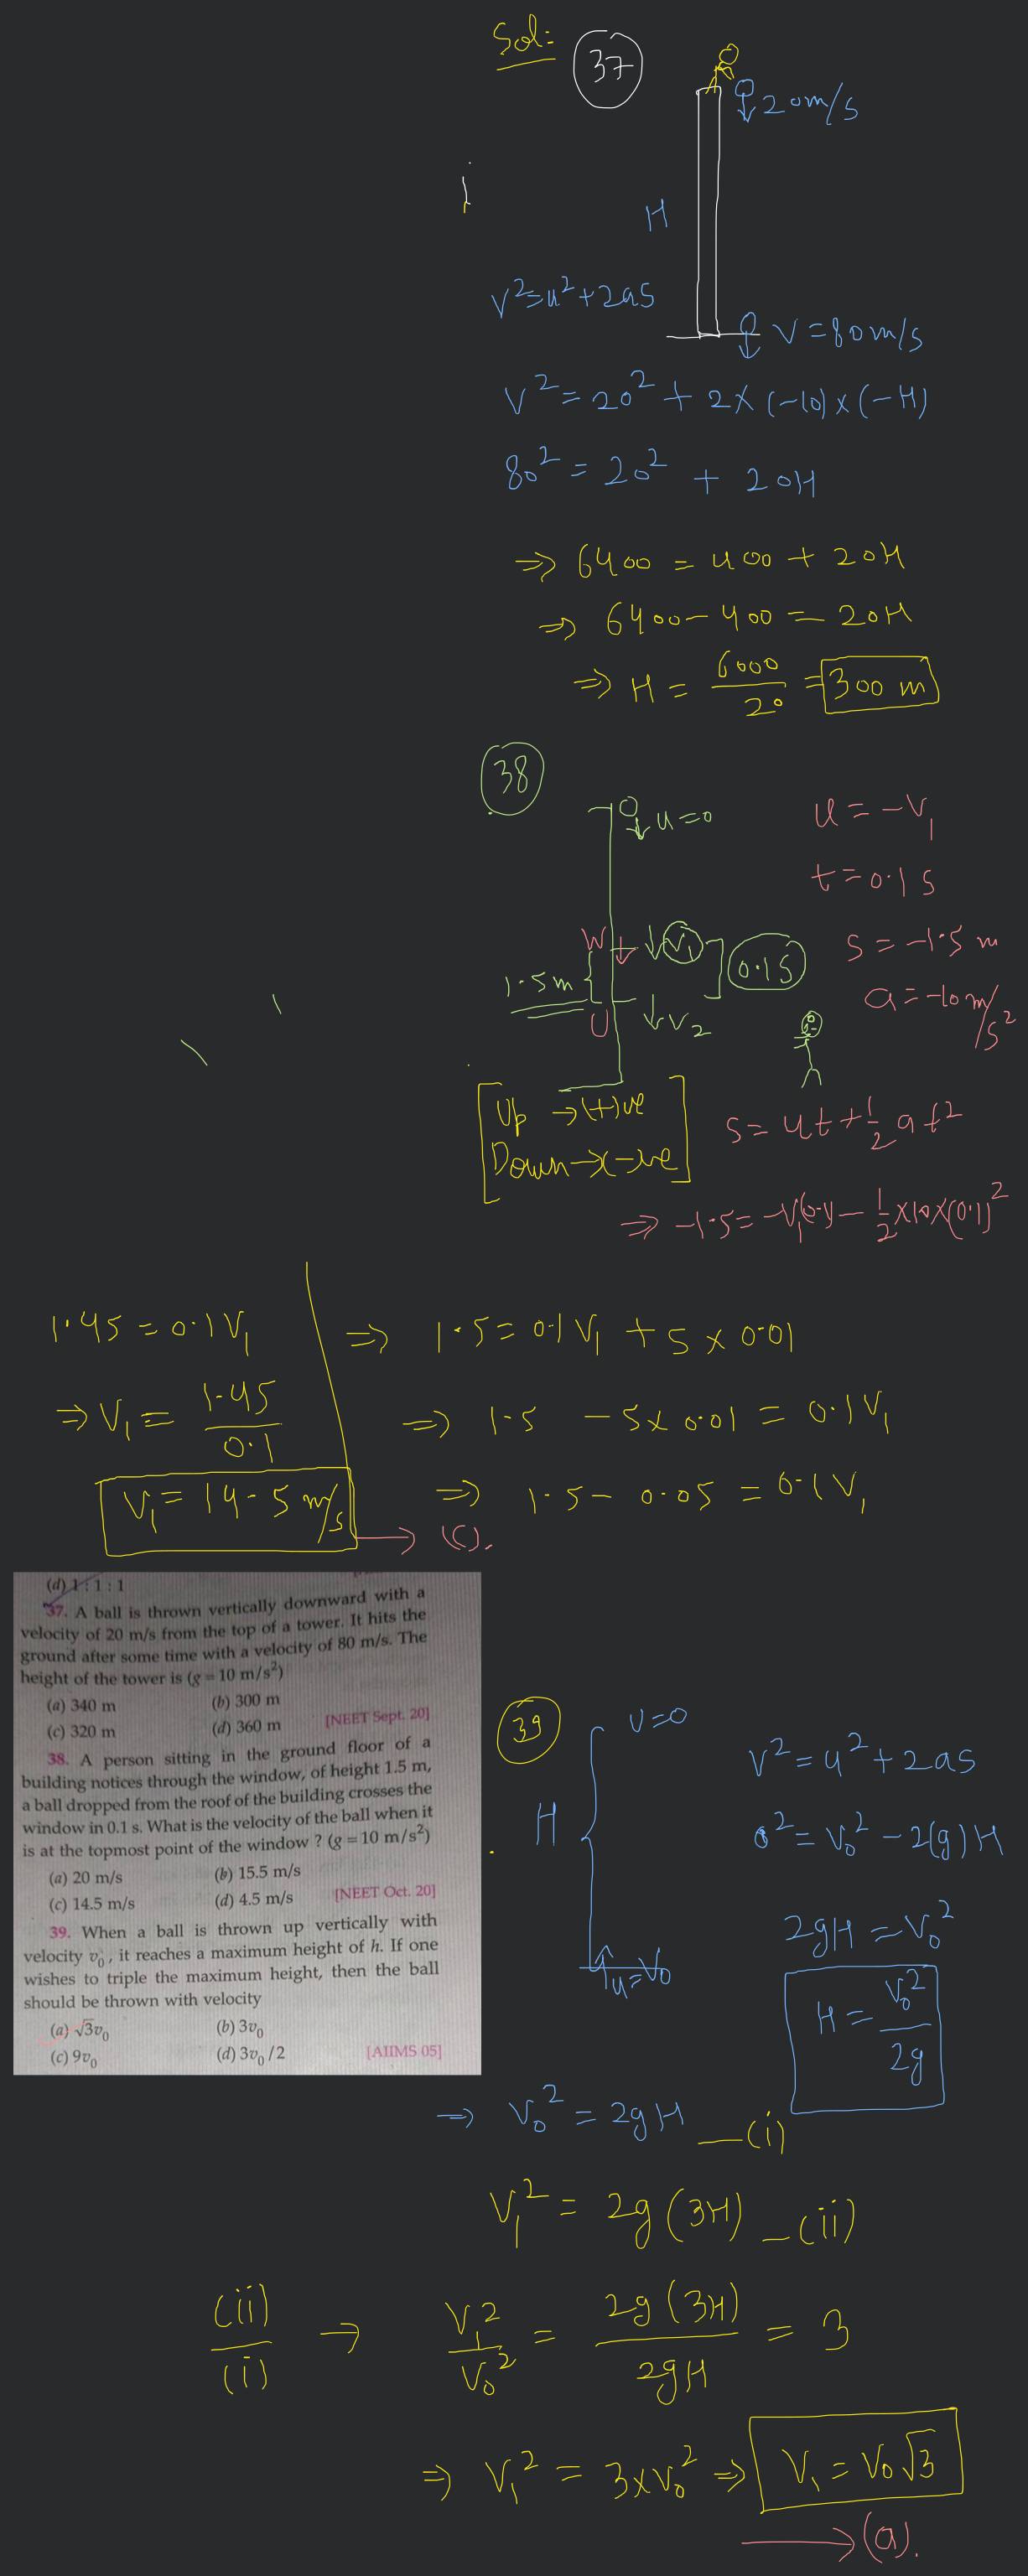 Sol:
37
20m/s
H
V²=u²+2as
V=80m/s
V²=20²+2×(-10)×(-H)
80²=20²+20H
⇒ 6400=400+20H
⇒ 6400-400=20H
⇒ H=6000/20=300 m
38
u=0
u=-V₁
t=0.1s
W
V₁
0.1s
s=-1.5m
1.5m
a=-10m/s²
U
V₂
Up → (+)ve
Down → -ve
s=ut+½at²
⇒ -1.5=-V₁(0.1)-½×10×(0.1)²
1.45=0.1V₁
⇒ 1.5=0.1V₁+5×0.01
⇒ V₁=1.45/0.1
⇒ 1.5-5×0.01=0.1V₁
V₁=14.5 m/s
⇒ 1.5-0.05=0.1V₁
→ (c).
(d) 1:1:1
37. A ball is thrown vertically downward with a
velocity of 20 m/s from the top of a tower. It hits the
ground after some time with a velocity of 80 m/s. The
height of the tower is (g = 10 m/s²)
(a) 340 m (b) 300 m
(c) 320 m (d) 360 m [NEET Sept. 20]
38. A person sitting in the ground floor of a
building notices through the window, of height 1.5 m,
a ball dropped from the roof of the building crosses the
window in 0.1 s. What is the velocity of the ball when it
is at the topmost point of the window ? (g = 10 m/s²)
(a) 20 m/s (b) 15.5 m/s
(c) 14.5 m/s (d) 4.5 m/s [NEET Oct. 20]
39. When a ball is thrown up vertically with
velocity v₀, it reaches a maximum height of h. If one
wishes to triple the maximum height, then the ball
should be thrown with velocity
(a) √3v₀ (b) 3v₀
(c) 9v₀ (d) 3v₀/2 [AIIMS 05]
39
V=0
V²=u²+2as
H
0²=V₀²-2(g)H
2gH=V₀²
u=V₀
H=V₀²/2g
⇒ V₀²=2gH —(i)
V₁²=2g(3H) —(ii)
(ii)/(i) → V₁²/V₀²=2g(3H)/2gH=3
⇒ V₁²=3×V₀² ⇒ V₁=V₀√3
→ (a).